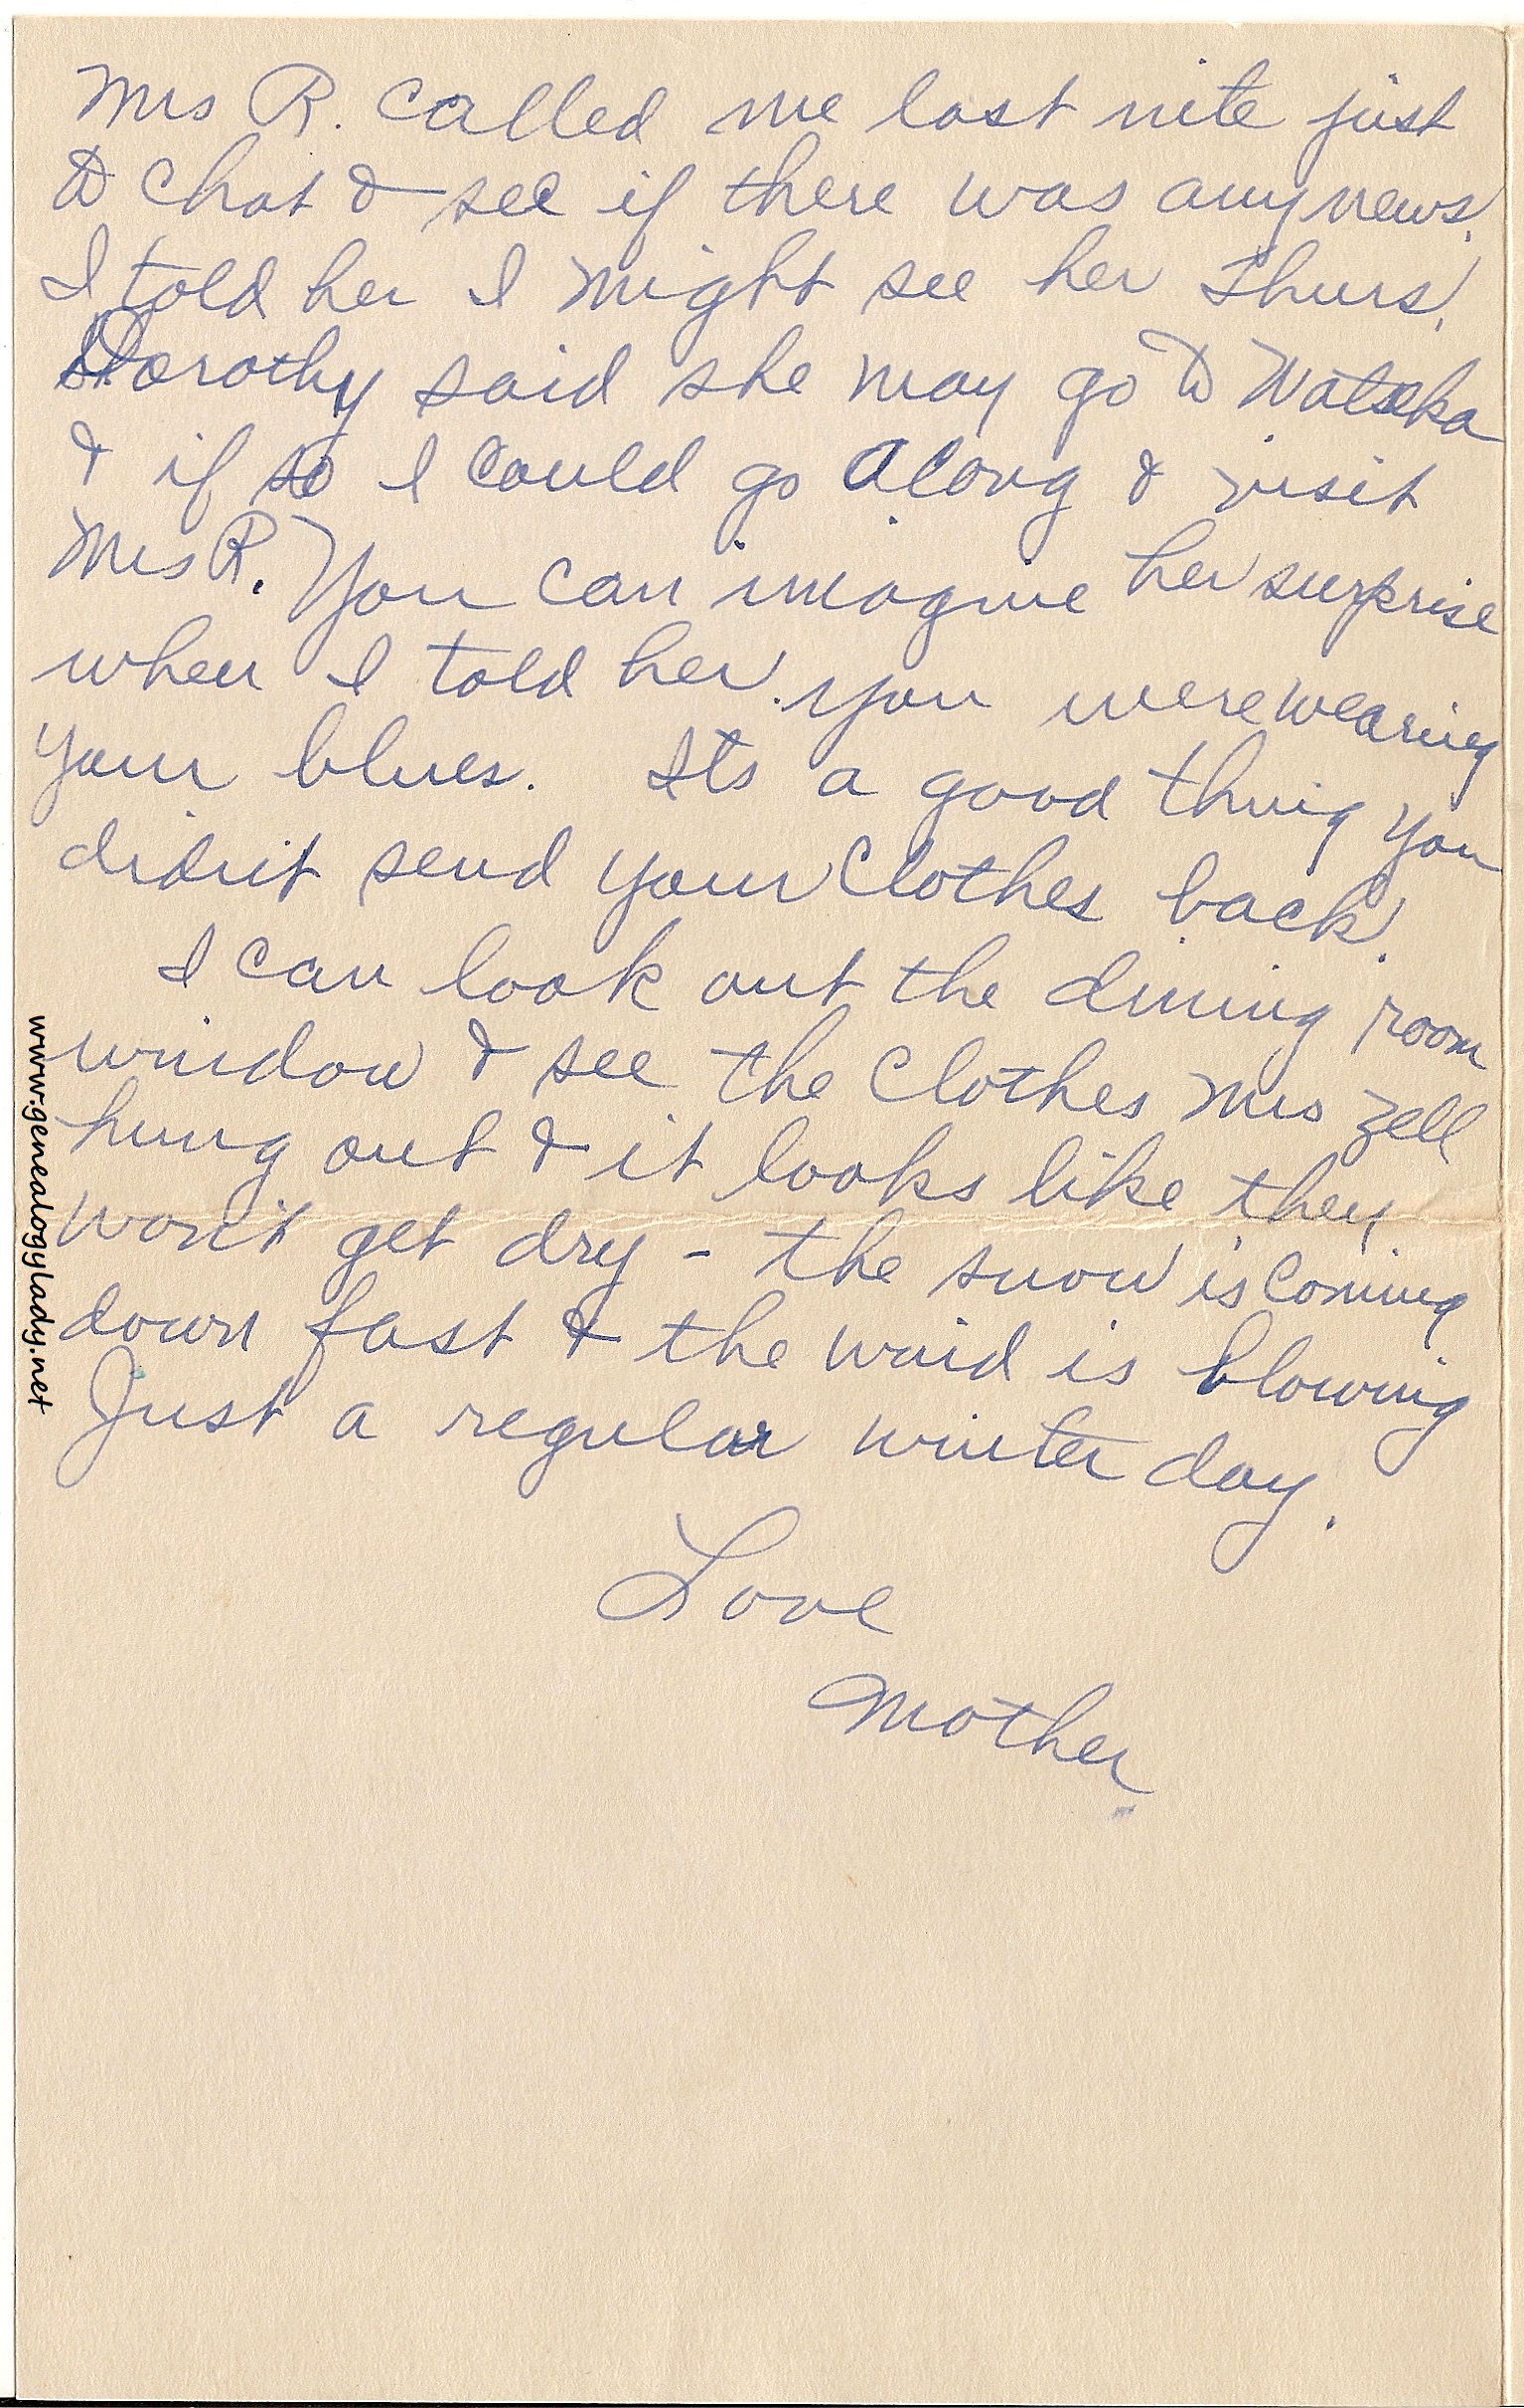 Mrs R. called me last nite just
to chat & see if there was any news.
I told her I might see her Thurs.
Dorothy said she may go to Watseka
& if so I could go along & visit
Mrs R. You can imagine her surprise
when I told her you were wearing
your blues. Its a good thing you
didn't send your clothes back.
I can look out the dining room
window & see the clothes Mrs Zell
hung out & it looks like they
won't get dry - the snow is coming
down fast & the wind is blowing
Just a regular winter day.
Love
Mother
www.genealogylady.net